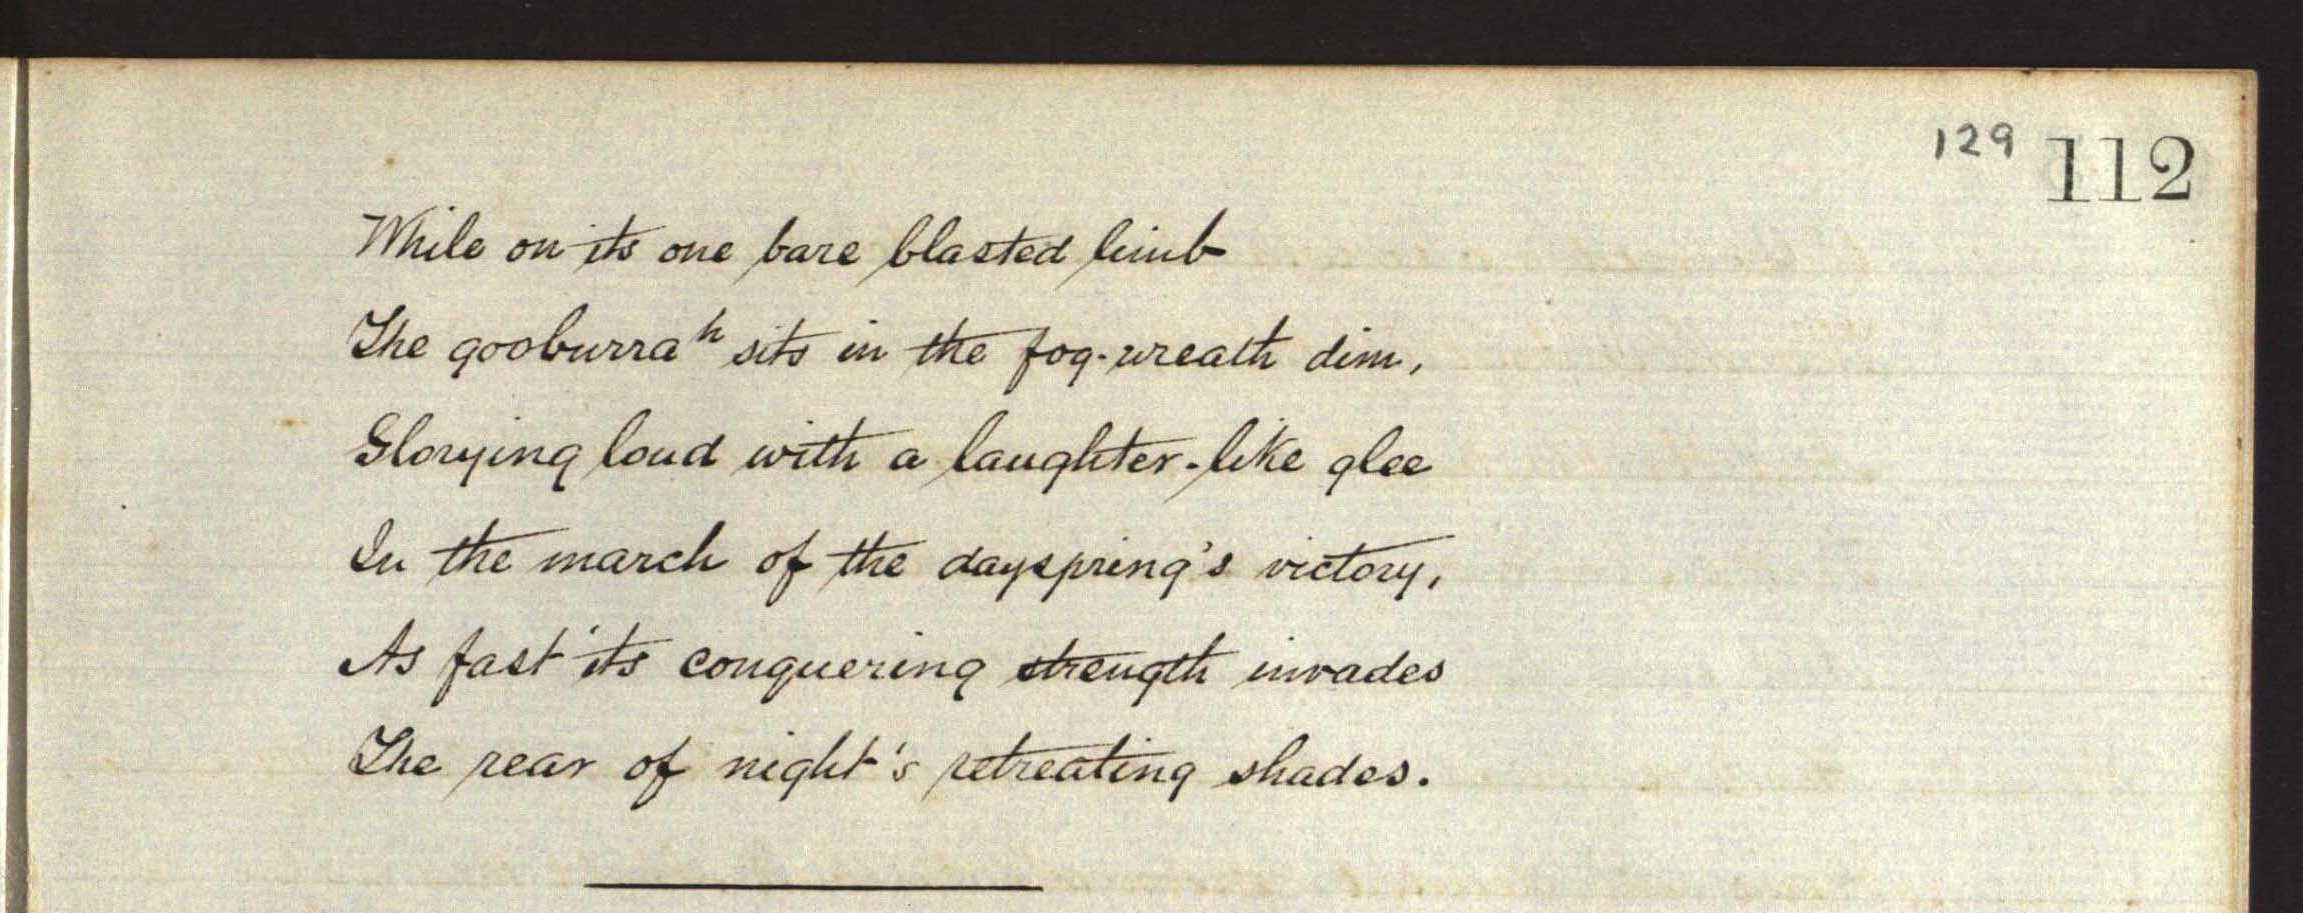 129 112
While on its one bare blasted limb
The gooburrah sits in the fog-wreath dim,
Glorying loud with a laughter-like glee
In the march of the dayspring's victory,
As fast its conquering strength invades
The rear of night's retreating shades.